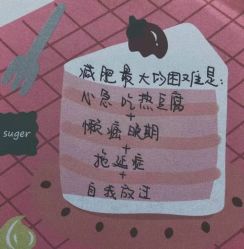 减肥最大的困难是:
心急吃热豆腐
+
懒癌晚期
+
suger
拖延症
+
自我放过